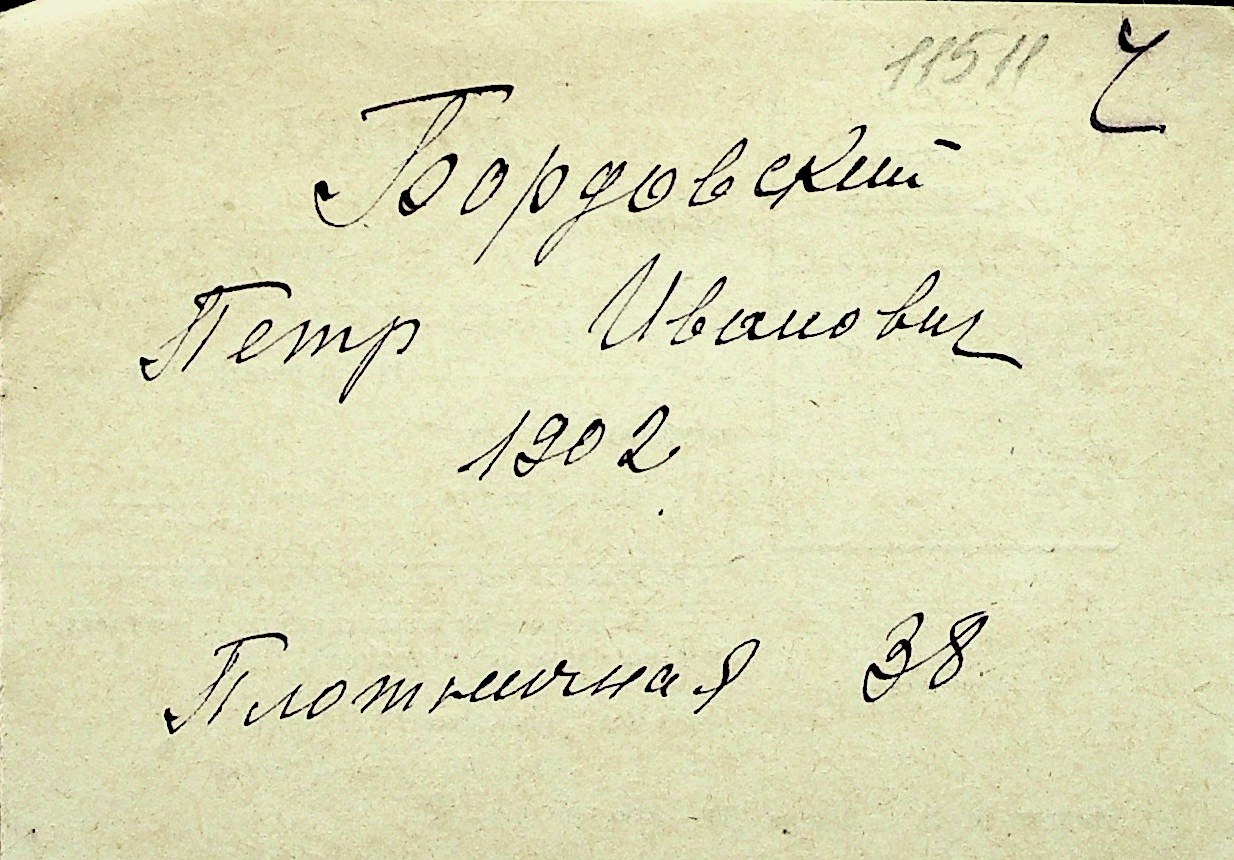 11511 Ч
Бордовский
Петр Иванович
1902
Плотничная 38